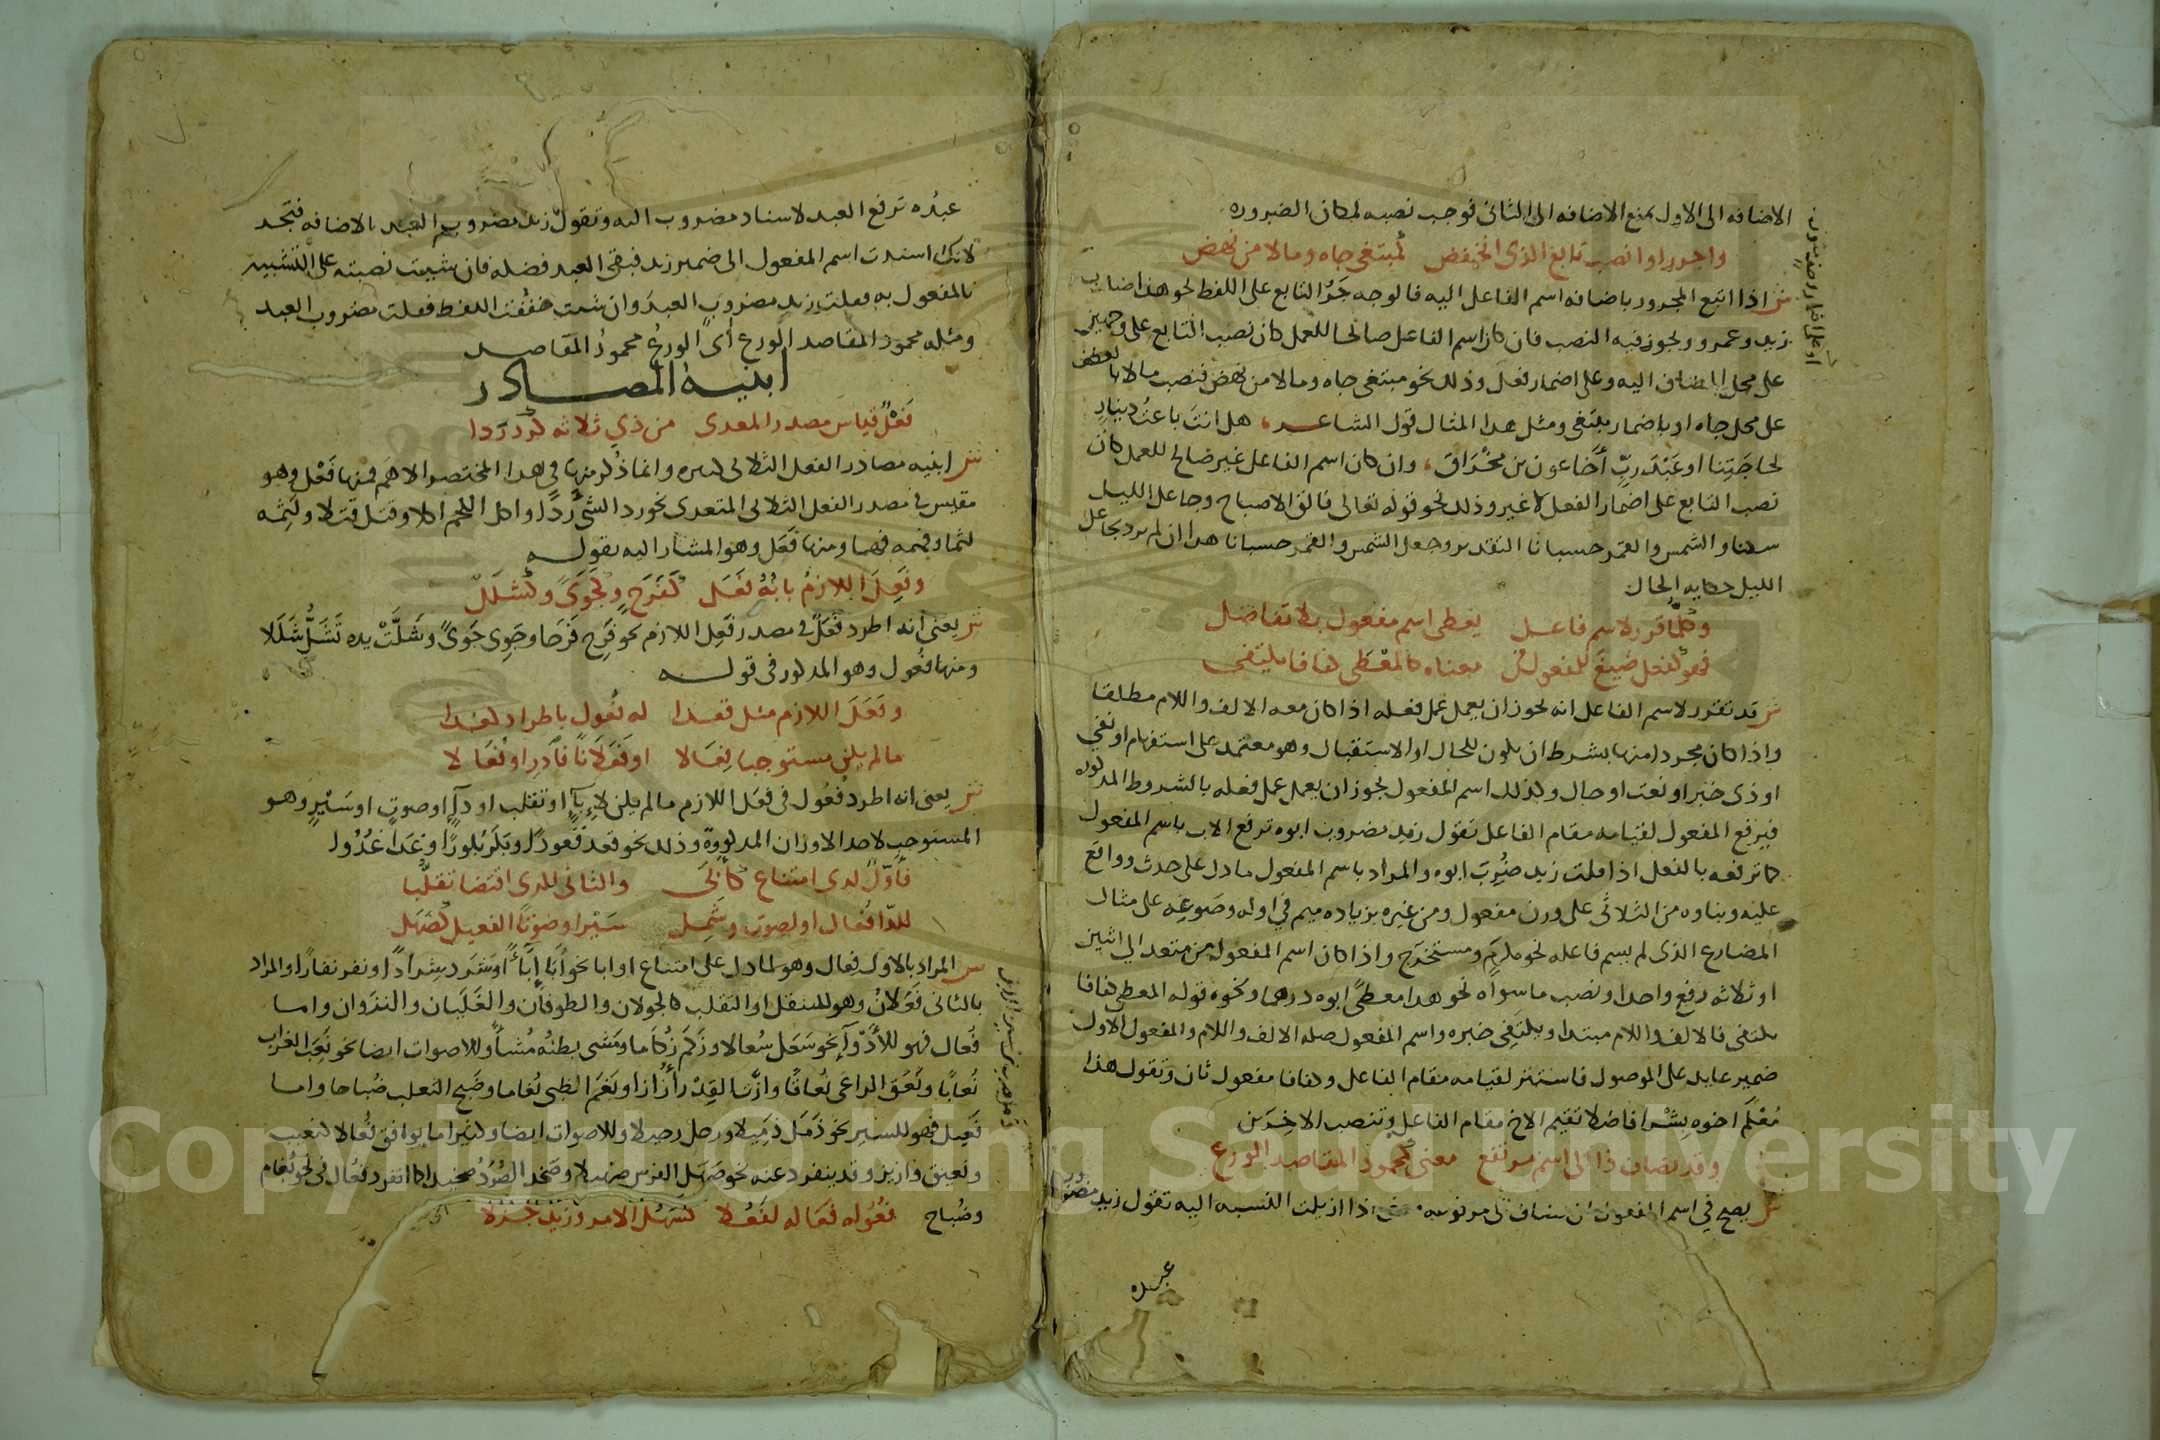 الاضافه الى الاول يمنع الاضافه الى الثانى فوجب نصبه لمكان الضروره
واجرر او انصب تابع الذى انخفض كمبتغى جاه ومالا من نهض
ش اذا اتبع المجرور باضافه اسم الفاعل اليه فالوجه جر التابع على اللفظ نحو هذا ضارب
زيد وعمرو ويجوز فيه النصب فان كان اسم الفاعل صالحا للعمل كان نصب التابع على وجهين
على محل المضاف اليه وعلى اضمار فعل وذلك نحو مبتغى جاه ومالا من نهض فنصب مالا بالعطف
على محل جاه او باضمار يبتغى ومثل هذا المثال قول الشاعر هل انت باعث دينار
لحاجتنا او عبد رب أخا عون بن مخراق وان كان اسم الفاعل غير صالح للعمل كان
نصب التابع على اضمار الفعل لا غير وذلك نحو قوله تعالى فالق الاصباح وجاعل الليل
سكنا والشمس والقمر حسبانا التقدير وجعل الشمس والقمر حسبانا هذا ان لم يرد بجاعل
الليل حكايه الحال
وكل ما قرر لاسم فاعل يعطى اسم مفعول بلا تفاضل
فهو كفعل صيغ للمفعول فى معناه كالمعطى كفافا يكتفى
ش قد تقرر لاسم الفاعل انه يجوز ان يعمل عمل فعله اذا كان معه الالف واللام مطلقا
واذا كان مجردا منها بشرط ان يكون للحال او الاستقبال وهو معتمد على استفهام او نفي
او ذى خبر او نعت او حال وكذلك اسم المفعول يجوز ان يعمل عمل فعله بالشروط المذكوره
فيرفع المفعول لقيامه مقام الفاعل تقول زيد مضروب ابوه ترفع الاب باسم المفعول
كما ترفعه بالفعل اذا قلت زيد ضُرِبَ ابوه والمراد باسم المفعول ما دل على حدث وواقع
عليه وبناوه من الثلاثى على وزن مفعول ومن غيره بزياده ميم في اوله وصوغه على مثال
المضارع الذى لم يسم فاعله نحو مكرم ومستخرج واذا كان اسم المفعول من متعد الى اثنين
او ثلاثه رفع واحدا ونصب ما سواه نحو هذا معطى ابوه درهما ونحوه قوله المعطى كفافا
يكتفى فالالف واللام مبتدا ويكتفى خبره واسم المفعول صله الالف واللام والمفعول الاول
ضمير عايد على الموصول فاستتر لقيامه مقام الفاعل وكفافا مفعول ثان وتقول هذا
مُعْلَم اخوه بشرا فاضلا تقيم الاخ مقام الفاعل وتنصب الاخرين
وقد يضاف ذا الى اسم مرتفع معنى كمحمود المقاصد الورع
ش يصح في اسم المفعول ان يضاف الى مرفوعه اذا ازيلت النسبه اليه تقول زيد مضروب
عبده
عبدُه ترفع العبد لاسناد مضروب اليه وتقول زيد مضروب العبد بالاضافه فتجر
لانك اسندت اسم المفعول الى ضمير زيد فبقى العبد فضله فان شيت نصبته على التشبيه
بالمفعول به فقلت زيد مضروب العبدَ وان شيت خففت اللفظ فقلت مضروب العبد
ومثله محمود المقاصد الورع أى الورع محمودُ المقاصد
ابنيه المصادر
فَعْلٌ قياس مصدر المعدى من ذي ثلاثه كرد ردا
ش ابنيه مصادر الفعل الثلاثى كثيره وانما ذكر منها في هذا المختصر الاهم فمنها فَعْل وهو
مقيس في مصدر الفعل الثلاثى المتعدى نحو رد الشى ردا واكل اللحم اكلا وقتل قتلا ولثمه
لثما وفهمه فهما ومنها فَعَل وهو المشار اليه بقوله
وفَعِلَ اللازمُ بابُهُ فَعَل كفَرَحٍ وكجَوىً وكشَلَلْ
ش يعنى انه اطرد فَعَل في مصدر فَعِل اللازم نحو فَرِح فَرَحا وجَوِى جَوىً وشَلَّتْ يده تَشَلُّ شَلَلا
ومنها فُعُول وهو المذكور فى قوله
وفَعَلَ اللازم مثل قعدا له فُعُول باطراد كغدا
ما لم يكن مستوجبا فِعَالا او فَعَلَانًا فادر او فُعَالا
ش يعنى انه اطرد فُعُول فى فَعَل اللازم ما لم يكن لإباءٍ او تقلب او داءٍ او صوت او سَيْرٍ وهو
المستوجب لاحد الاوزان المذكورة وذلك نحو قعد قعودًا وبَكَر بُكورًا وغَدَا غُدُوا
فاوّلٌ لذى امتناع كأبَى والثانى للذى اقتضا تقلُّبا
للدّا فُعَال او لصوت وشَمِل سَيْرا وصوتًا الفعيل كصَهَل
ش المراد بالاول فِعال وهو لما دل على امتناع او ابا نحو أبَا إِبَاءً وشَرَد شِرادًا ونفر نفارًا والمراد
بالثانى فَعَلانُ وهو للتنقل او التقلب كالجولان والطوفان والغَلَيان والنزوان واما
فُعال فهو للأدْوآءِ نحو سَعَل سُعالا وزُكِمَ زُكَاما ومَشى بطنُه مُشاءً وللاصوات ايضا نحو نَعَب الغراب
نُعابًا ونَعَق الراعى نُعاقًا وازَّت القِدْر أُزازا وبَغَم الظبى بُغاما وضَبح الثعلب ضُباحا واما
فَعِيل فهو للسير نحو ذَمَل ذمَيلا ورحل رحيلا وللاصوات ايضا وكثيرا ما يوافق فُعالا كنعيب
ونعيق وازيز وقد ينفرد عنه نحو صَهَل الفرس صهيلا وصَخَد الصُّرَدُ صخيدا كما انفرد فُعال فى نحو بُغام
وضُباح فُعُوله فَعَاله لفَعُلا كسَهُل الامر وزيد جَزُلا
Copyright © King Saud University